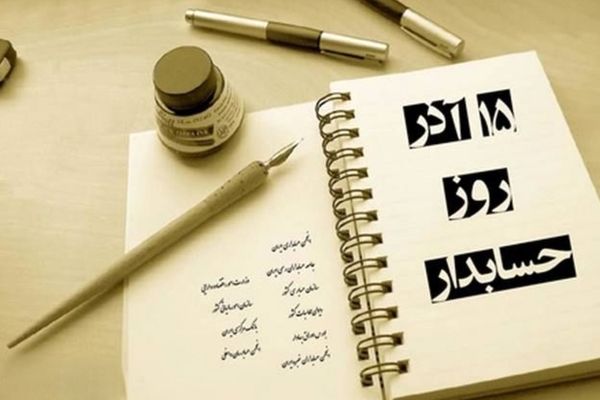 ۱۵ آذر
روز
حسابدار
انجمن حسابداری ایران
جامعه حسابداران رسمی ایران
سازمان حسابرسی کشور
دیوان محاسبات کشور
بورس اوراق بهادار
انجمن حسابداران خبره ایران
وزارت امور اقتصاد و دارایی
سازمان امور مالیاتی کشور
بانک مرکزی ایران
انجمن حسابرسان داخلی